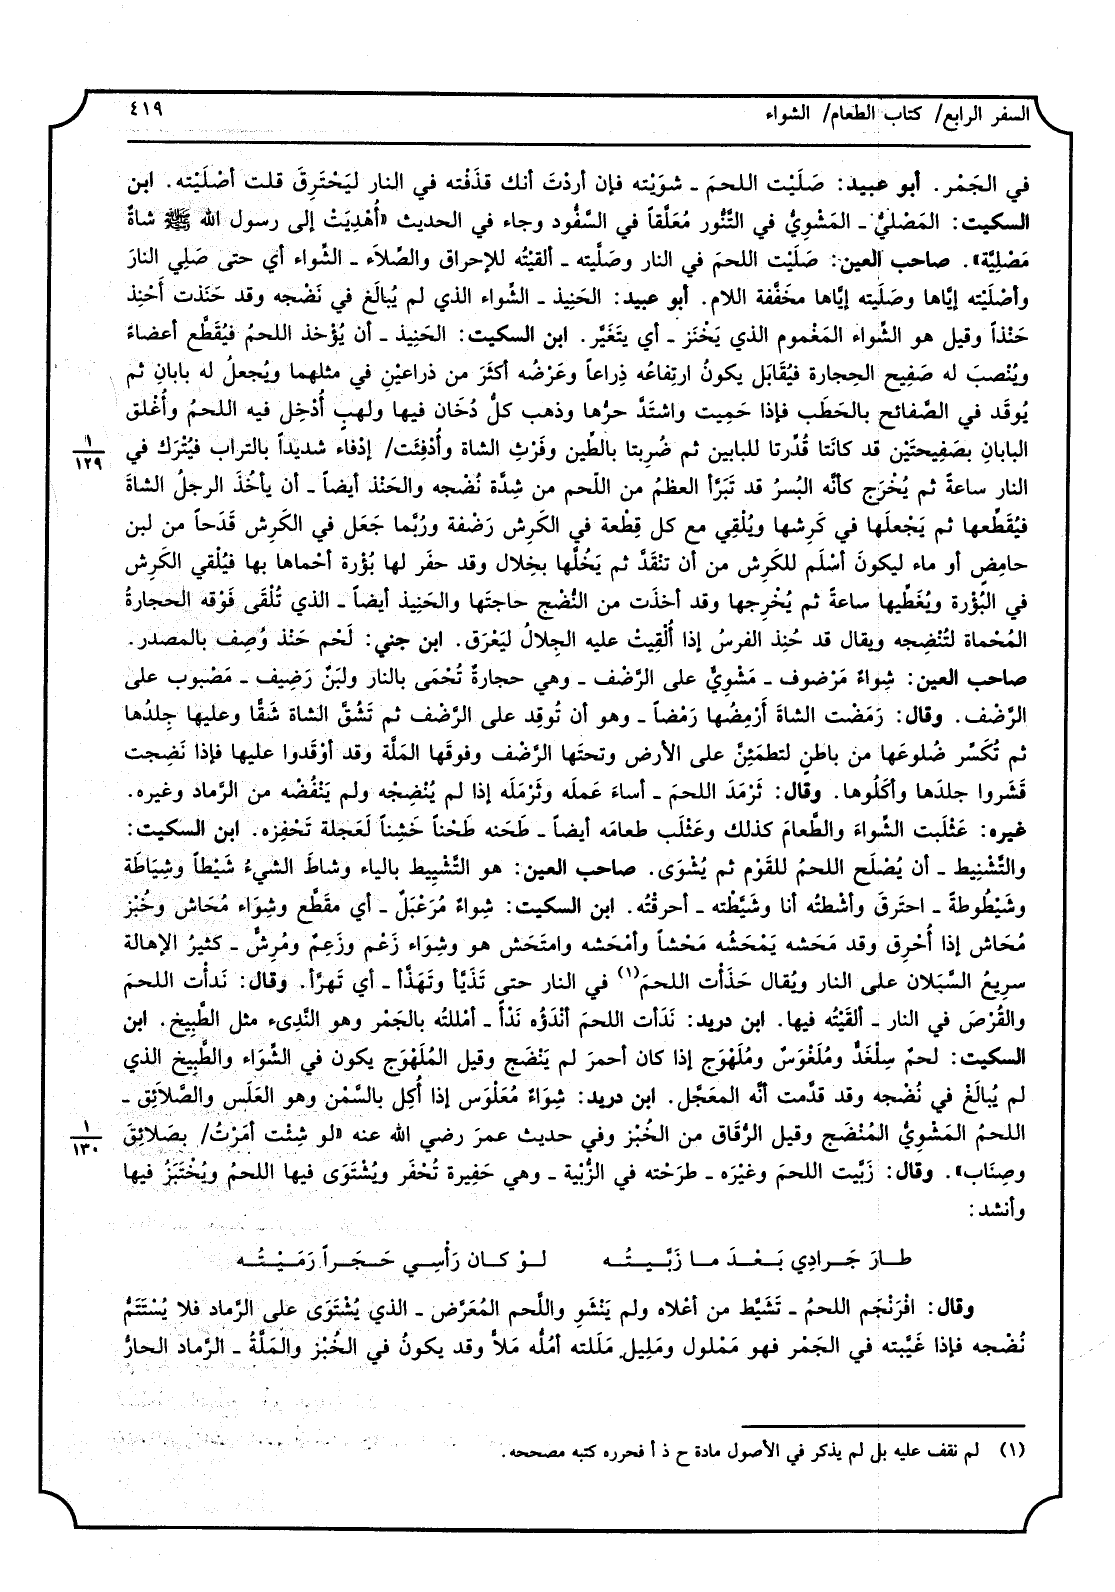 السفر الرابع/ كتاب الطعام/ الشواء ٤١٩
في الجَمْر. أبو عبيد: صَلَيْت اللحمَ ـ شوَيْته فإن أردْتَ أنك قذَفْته في النار ليَحْتَرِقَ قلت أصْلَيْته. ابن
السكيت: المَصْليُّ ـ المَشْوِيُّ في التَّنُّور مُعَلَّقاً في السَّفُّود وجاء في الحديث «أُهْدِيَتْ إلى رسول الله ﷺ شاةٌ
مَصْلِيَّة». صاحب العين: صَلَيْت اللحمَ في النار وصَلَّيته ـ ألقيْتُه للإحراق والصِّلاَء ـ الشِّواء أي حتى صَلِي النارَ
وأصْلَيْته إيَّاها وصَلَيته إيَّاها مخَفَّفة اللام. أبو عبيد: الحَنِيذ ـ الشِّواء الذي لم يُبالَغ في نَضْجه وقد حَنَذت أَحْنِذ
حَنْذاً وقيل هو الشِّواء المَغْموم الذي يَخْنَز ـ أي يتَغَيَّر. ابن السكيت: الحَنِيذ ـ أن يُؤْخذ اللحمُ فيُقَطَّع أعضاءً
ويُنْصبَ له صَفِيح الحِجارة فيُقابَل يكونُ ارتِفاعُه ذِراعاً وعَرْضُه أكثَرَ من ذراعيْنِ في مثلهما ويُجعلُ له بابانِ ثم
يُوقَد في الصَّفائح بالحَطَب فإذا حَمِيت واشتَدَّ حرُّها وذهب كلُّ دُخَان فيها ولهبٍ أُدْخِل فيه اللحمُ وأُغْلق
البابانِ بصَفِيحتَيْنِ قد كانَتا قُدِّرتا للبابين ثم ضُرِبتا بالطِّين وفَرْثِ الشاة وأُدْفِئَت/ إدْفاء شديداً بالتراب فيُتْرَك في
١
١٢٩
النار ساعةً ثم يُخْرَج كأنَّه البُسرُ قد تَبَرَّأ العظمُ من اللّحم من شِدَّة نُضْجه والحَنْذ أيضاً ـ أن يأخُذَ الرجلُ الشاةَ
فيُقَطِّعها ثم يَجْعلَها في كَرِشها ويُلْقِي مع كل قِطْعة في الكَرِش رَضْفة ورُبَّما جَعَل في الكَرِش قَدَحاً من لبن
حامِضٍ أو ماء ليكونَ أسْلَم للكَرِش من أن تنْقَدَّ ثم يَخُلَّها بخِلال وقد حفَر لها بُؤْرة أحْماها بها فيُلْقي الكَرِش
في البُؤْرة ويُغَطِّيها ساعةً ثم يُخْرِجها وقد أخذَت من النُّضْج حاجتَها والحَنِيذ أيضاً ـ الذي تُلْقَى فَوْقه الحجارةُ
المُحْماة لتُنْضِجه ويقال قد حُنِذ الفرسُ إذا أُلْقِيتْ عليه الجِلالُ ليَعْرَق. ابن جني: لَحْم حَنْذ وُصِف بالمصدر.
صاحب العين: شِواءٌ مَرْضوف ـ مَشْوِيٌّ على الرَّضْف ـ وهي حجارةٌ تُحْمَى بالنار ولبَنٌ رَضِيف ـ مَصْبوب على
الرَّضْف. وقال: رَمَضْت الشاةَ أَرْمِضُها رَمْضاً ـ وهو أن تُوقِد على الرَّضْف ثم تَشُقَّ الشاة شَقًّا وعليها جِلدُها
ثم تُكَسِّر ضُلوعَها من باطنٍ لتطمَئِنَّ على الأرض وتحتَها الرَّضْف وفوقَها المَلَّة وقد أوْقَدوا عليها فإذا نَضِجت
قَشَروا جلدَها وأكَلُوها. وقال: ثَرْمَدَ اللحمَ ـ أساءَ عَملَه وثَرْمَلَه إذا لم يُنْضِجْه ولم يَنْفُضْه من الرَّماد وغيره.
غيره: عَثْلَبت الشِّواءَ والطَّعامَ كذلك وعَثْلَب طعامَه أيضاً ـ طَحَنه طَحْناً خَشِناً لعَجلة تَحْفِزه. ابن السكيت:
والتَّشْنِيط ـ أن يُصْلَح اللحمُ للقَوْم ثم يُشْوَى. صاحب العين: هو التَّشْيِيط بالياء وشاطَ الشيءُ شَيْطاً وشِيَاطَة
وشَيْطُوطةً ـ احتَرقَ وأشْطتُه أنا وشَيَّطْته ـ أحرقْتُه. ابن السكيت: شِواءٌ مُرَعْبَلٌ ـ أي مقَطَّع وشِوَاء مُحَاش وخُبْز
مُحَاش إذا أُحْرِق وقد مَحَشه يَمْحَشُه مَحْشاً وأمْحَشه وامتَحَش هو وشِوَاء زَعْم وزَعِمٌ ومُرِشٌّ ـ كثيرُ الإهالة
سرِيعُ السَّيَلان على النار ويُقال حَذَأْت اللحمَ(١) في النار حتى تَذَيَّأ وتَهَذَّأ ـ أي تَهرَّأ. وقال: نَدأْت اللحمَ
والقُرْصَ في النار ـ ألقَيْتُه فيها. ابن دريد: نَدَأت اللحمَ أنْدَؤُه نَدْأً ـ أمْللتُه بالجَمْر وهو النَّدِيء مثل الطَّبِيخ. ابن
السكيت: لحمٌ سِلْغَدٌّ ومُلَغْوَسٌ ومُلَهْوَج إذا كان أحمرَ لم يَنْضَج وقيل المُلَهْوَج يكون في الشِّوَاء والطَّبِيخ الذي
لم يُبالَغْ في نُضْجه وقد قدَّمت أنَّه المعَجَّل. ابن دريد: شِوَاءٌ مُعَلْوَس إذا أُكِل بالسَّمْن وهو العَلَس والصَّلاَئِق ـ
اللحمُ المَشْوِيُّ المُنْضَج وقيل الرِّقاق من الخُبْز وفي حديث عمرَ رضي الله عنه «لو شِئْت أمَرْتُ/ بصَلائِقَ
١
١٣٠
وصِنَاب». وقال: زَبَّيت اللحمَ وغيْرَه ـ طرَحْته في الزُّبْية ـ وهي حَفِيرة تُحْفَر ويُشْتَوَى فيها اللحمُ ويُخْتَبَزُ فيها
وأنشد:
طارَ جَرادِي بَعْدَ ما زَبَّيتُه لو كان رَأْسِي حَجَراً رَمَيْتُه
وقال: افْرَنْجَم اللحمُ ـ تَشَيَّط من أعْلاه ولم يَنْشَوِ واللَّحم المُعَرَّض ـ الذي يُشْتَوَى على الرَّماد فلا يُسْتَتَمُّ
نُضْجه فإذا غَيَّبته في الجَمْر فهو مَمْلول ومَلِيل مَلَلته أمُلُّه مَلاًّ وقد يكونُ في الخُبْز والمَلَّةُ ـ الرَّماد الحارُّ
(١) لم نقف عليه بل لم يذكر في الأصول مادة ح ذ أ فحرره كتبه مصححه.